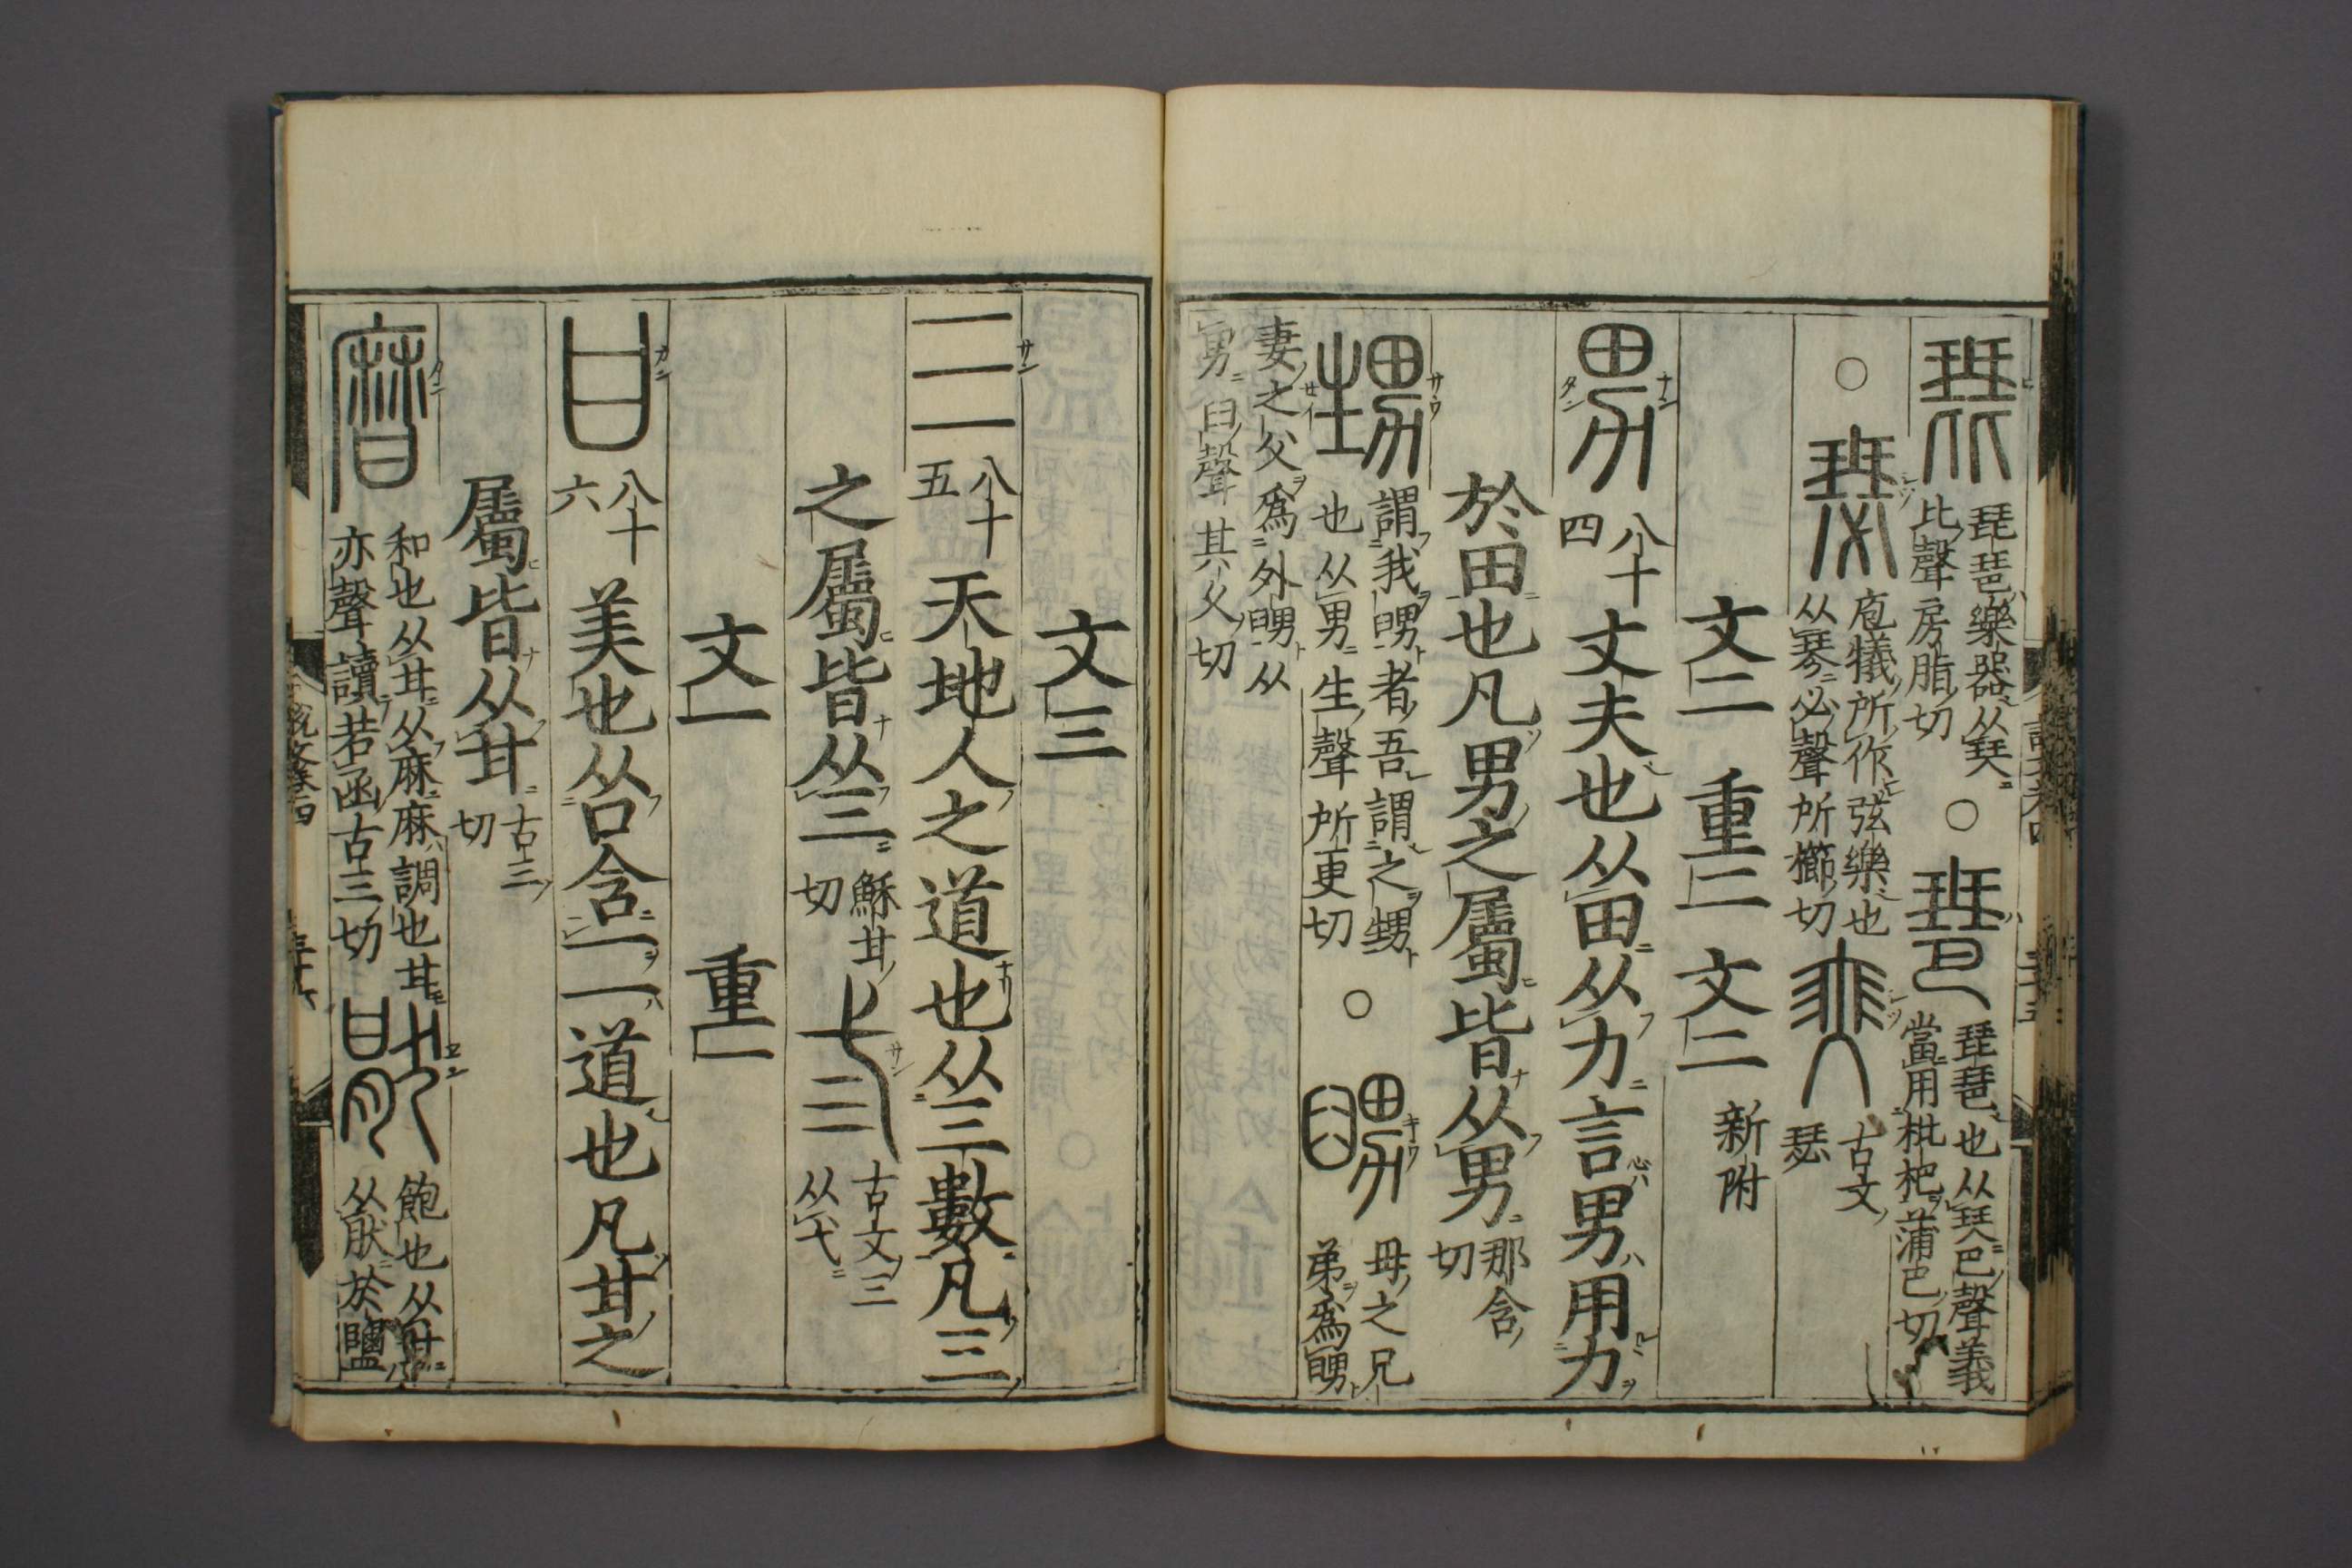 琵 琵琶樂器从琴
比聲房脂切 ○ 琶 琵琶也从琴巴聲義
當用枇杷蒲巴切
○ 瑟 庖犧所作弦樂也
从琴必聲所櫛切 古文
瑟
文二 重二 文二 新附
男 八十
四 丈夫也从田从力言男用力
於田也凡男之屬皆从男 那含
切
甥 謂我舅者吾謂之甥
也从男生聲所更切 ○ 舅 母之兄
弟爲舅
妻之父爲外舅从
男臼聲其久切
文三
三 八十
五 天地人之道也从三數凡三
之屬皆从三 穌甘
切 弎 古文三
从弋
文一 重一
甘 八十
六 美也从口含一一道也凡甘之
屬皆从甘 古三
切
磿 和也从甘从麻麻調也甘
亦聲讀若函古三切 猒 飽也从甘
从肰於鹽
說文卷四